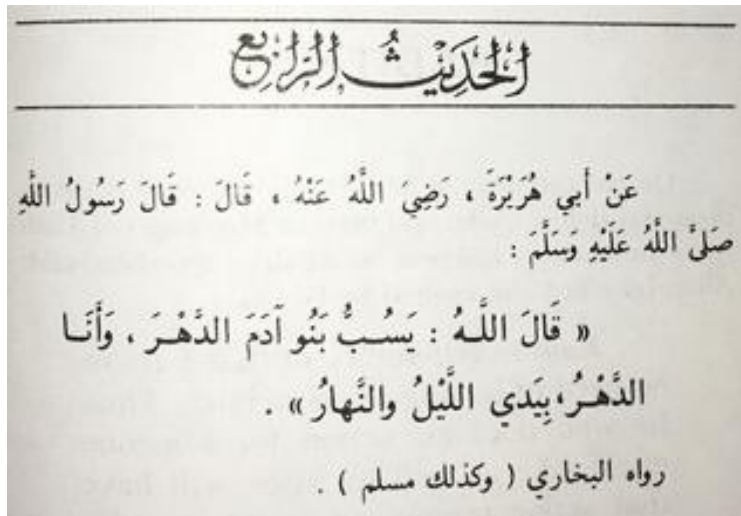 الْحَدِيْثُ الرَّابِعُ
عَنْ أَبِي هُرَيْرَةَ ، رَضِيَ اللَّهُ عَنْهُ ، قَالَ : قَالَ رَسُولُ اللَّهِ
صَلَّى اللَّهُ عَلَيْهِ وَسَلَّمَ :
« قَالَ اللَّهُ : يَسُبُّ بَنُو آدَمَ الدَّهْرَ ، وَأَنَا
الدَّهْرُ، بِيَدِي اللَّيْلُ والنَّهارُ » .
رواه البخاري ( وكذلك مسلم ) .